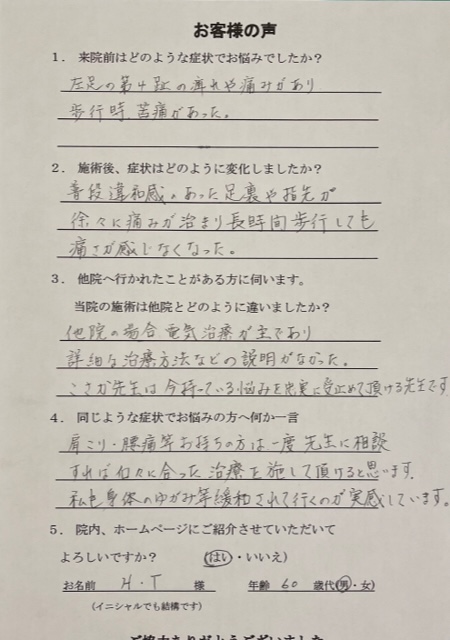 お客様の声
1. 来院前はどのような症状でお悩みでしたか?
左足の第4趾の痺れや痛みがあり
歩行時、苦痛があった。
2. 施術後、症状はどのように変化しましたか?
普段違和感のあった足裏や指先が
徐々に痛みが治まり長時間歩行しても
痛さが感じなくなった。
3. 他院へ行かれたことがある方に伺います。
当院の施術は他院とどのように違いましたか?
他院の場合 電気治療が主であり
詳細な治療方法などの説明がなかった。
こさか先生は今持っている悩みを忠実に受止めて頂ける先生です
4. 同じような症状でお悩みの方へ何か一言
肩こり・腰痛等お持ちの方は一度先生に相談
すれば個々に合った治療を施して頂けると思います。
私も身体のゆがみ等緩和されて行くのが実感しています。
5. 院内、ホームページにご紹介させていただいて
よろしいですか? (はい・いいえ)
お名前 H・T 様 年齢 60 歳代(男・女)
(イニシャルでも結構です)
ご協力ありがとうございました